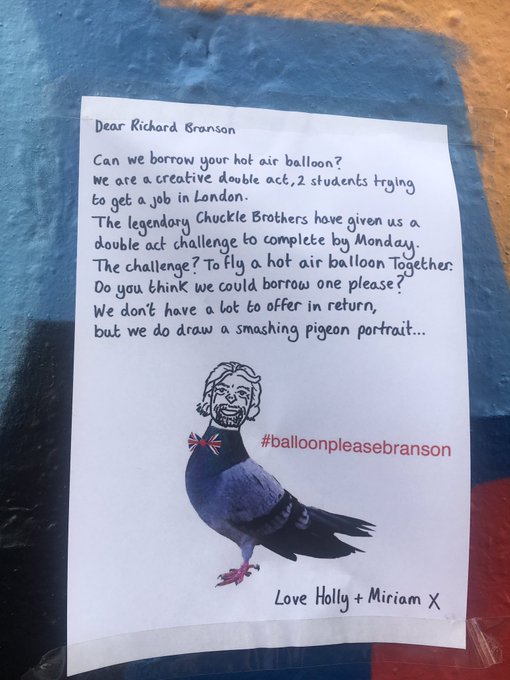 Dear Richard Branson
Can we borrow your hot air balloon?
we are a creative double act, 2 students trying
to get a job in London.
The legendary Chuckle Brothers have given us a
double act challenge to complete by Monday.
The challenge? To fly a hot air balloon Together.
Do you think we could borrow one please?
We don't have a lot to offer in return,
but we do draw a smashing pigeon portrait...
#balloonpleasebranson
Love Holly + Miriam X